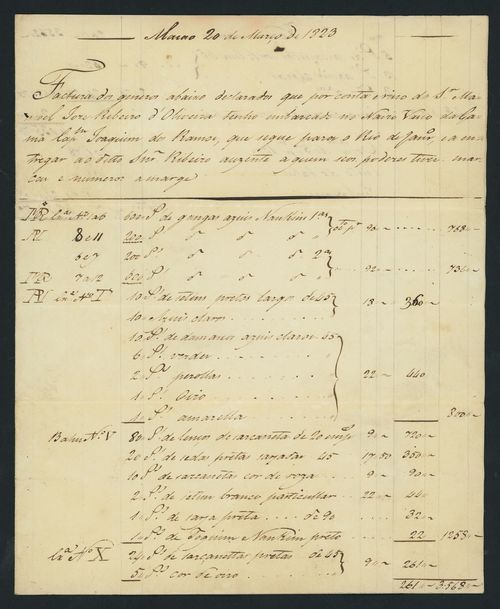 Macao 20 de Março de 1823
Factura dos generos abaixo declarados que por conta e risco do Sr. Ma-
noel Joze Ribeiro d'Oliveira tenho embarcado no Navio Vasco da Ga-
ma Capm. Joaquim do Ramos, que segue para o Rio de Janro., e a en-
tregar ao ditto Snr. Ribeiro auzente a quem seos poderes tiver mar-
cas e numeros a marge
Cxa. No. 1 a 6 600 Ps. de gangas azuis Nankim 1as. 90 738
8 e 11 200 Ps. do do do
6 e 7 200 Ps. do do do 2as.
7 a 12 600 Ps. do do do 92 736
Cxa. No. T 10 Ps. de setim pretos largo de 45 18 360
10 Azuis claros
10 Ps. de damasco azuis claros 45
6 Ps. verdes
2 Ps. perollas 22 440
1 Ps. Oiro
1 Ps. amarella 800
Bahu No. V 80 Ps. de lenços de sarcaneta de 20 9 720
20 Ps. de sedas pretas 45 17,50 350
10 Ps. de sarcanetas cor de roza 9 90
2 Ps. de setim branco particullar 22 44
1 Ps. de sarja preta de 90 32
1 Ps. de Nankim preto 22 1258
Cxa. No. X 24 Ps. de sarçanetas pretas de 45 9 261
5 Ps. cor de oiro
261 3:568